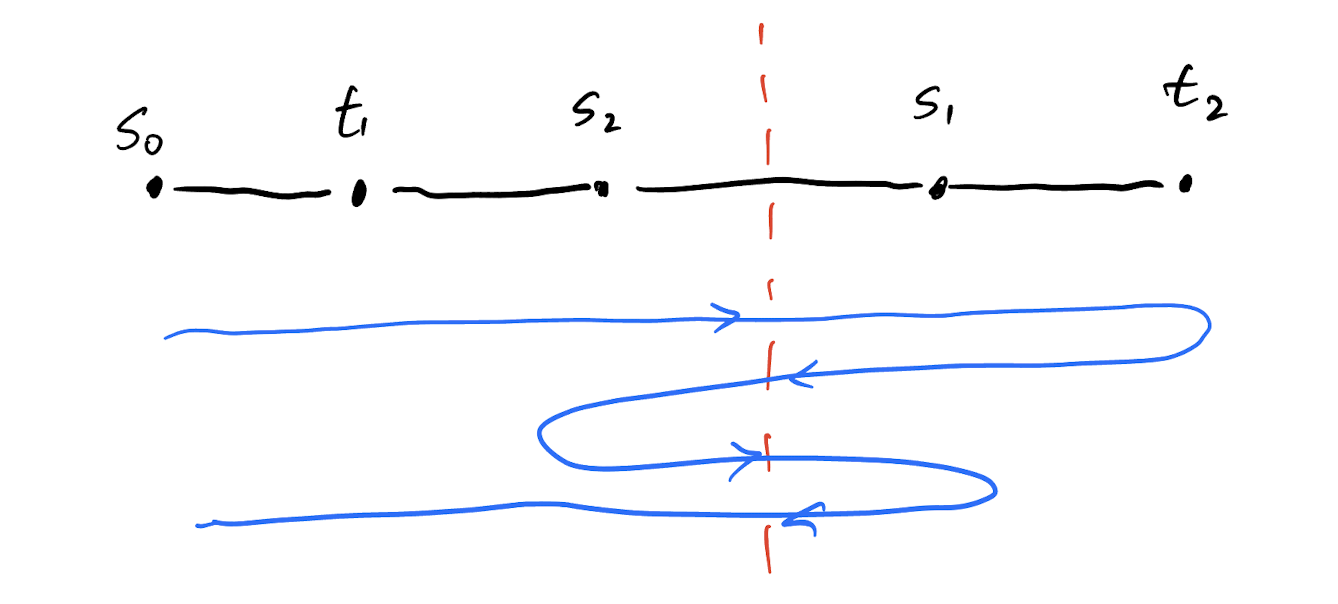 s₀ t₁ s₂ s₁ t₂